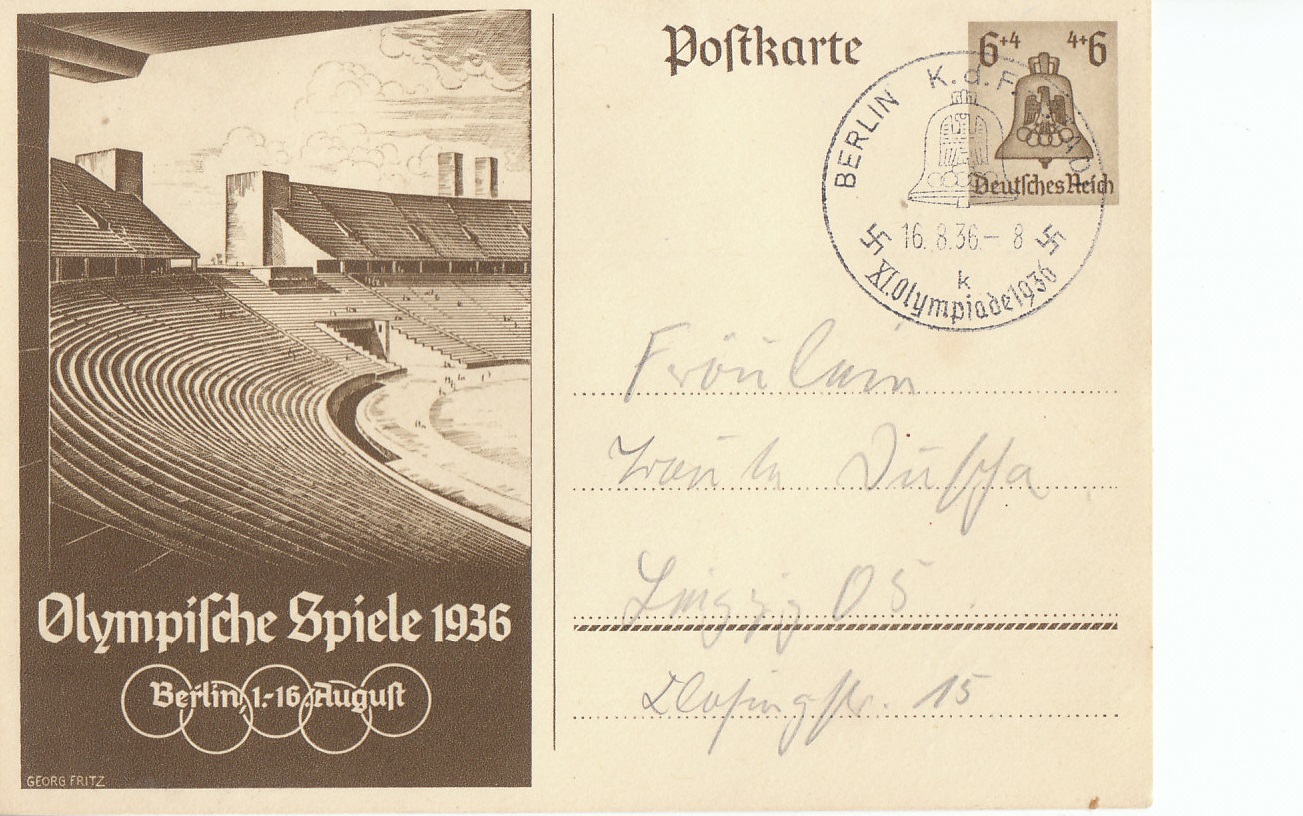 Postkarte
6+4 4+6
Deutsches Reich
BERLIN K.d.F.
16.8.36 — 8
k
XI. Olympiade 1936
Fräulein
Leipzig O5
15
Olympische Spiele 1936
Berlin, 1.-16. August
GEORG FRITZ